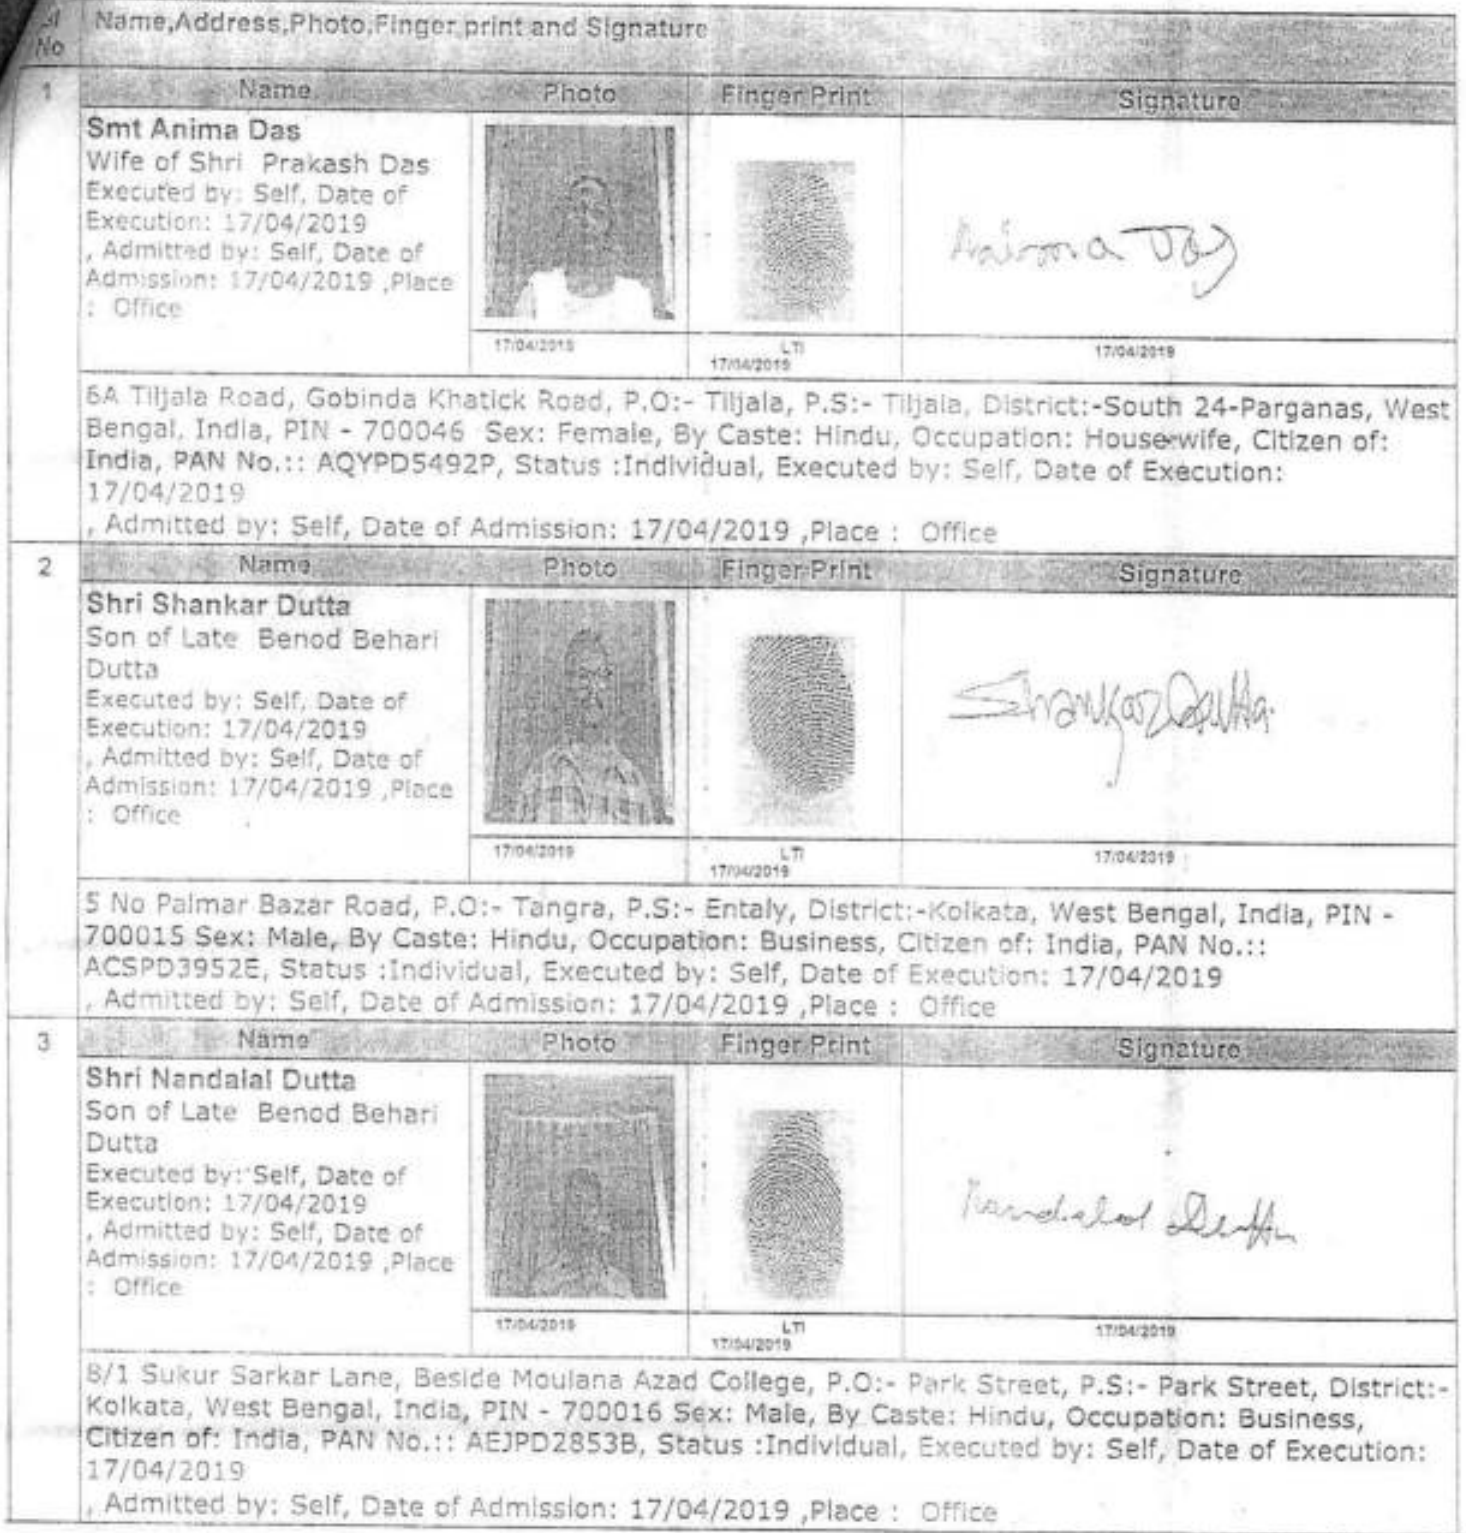 Sl Name,Address,Photo,Finger print and Signature
No
1 Name Photo Finger Print Signature
Smt Anima Das
Wife of Shri Prakash Das
Executed by: Self, Date of
Execution: 17/04/2019
, Admitted by: Self, Date of
Admission: 17/04/2019 ,Place
: Office
Anima Das
17/04/2019 LTI 17/04/2019
17/04/2019
6A Tiljala Road, Gobinda Khatick Road, P.O:- Tiljala, P.S:- Tiljala, District:-South 24-Parganas, West
Bengal, India, PIN - 700046 Sex: Female, By Caste: Hindu, Occupation: House wife, Citizen of:
India, PAN No.:: AQYPD5492P, Status :Individual, Executed by: Self, Date of Execution:
17/04/2019
, Admitted by: Self, Date of Admission: 17/04/2019 ,Place : Office
2 Name Photo Finger Print Signature
Shri Shankar Dutta
Son of Late Benod Behari
Dutta
Executed by: Self, Date of
Execution: 17/04/2019
, Admitted by: Self, Date of
Admission: 17/04/2019 ,Place
: Office
Shankar Dutta.
17/04/2019 LTI 17/04/2019
17/04/2019
5 No Palmar Bazar Road, P.O:- Tangra, P.S:- Entaly, District:-Kolkata, West Bengal, India, PIN -
700015 Sex: Male, By Caste: Hindu, Occupation: Business, Citizen of: India, PAN No.::
ACSPD3952E, Status :Individual, Executed by: Self, Date of Execution: 17/04/2019
, Admitted by: Self, Date of Admission: 17/04/2019 ,Place : Office
3 Name Photo Finger Print Signature
Shri Nandalal Dutta
Son of Late Benod Behari
Dutta
Executed by: Self, Date of
Execution: 17/04/2019
, Admitted by: Self, Date of
Admission: 17/04/2019 ,Place
: Office
Nandalal Dutta
17/04/2019 LTI 17/04/2019
17/04/2019
8/1 Sukur Sarkar Lane, Beside Moulana Azad College, P.O:- Park Street, P.S:- Park Street, District:-
Kolkata, West Bengal, India, PIN - 700016 Sex: Male, By Caste: Hindu, Occupation: Business,
Citizen of: India, PAN No.:: AEJPD2853B, Status :Individual, Executed by: Self, Date of Execution:
17/04/2019
, Admitted by: Self, Date of Admission: 17/04/2019 ,Place : Office